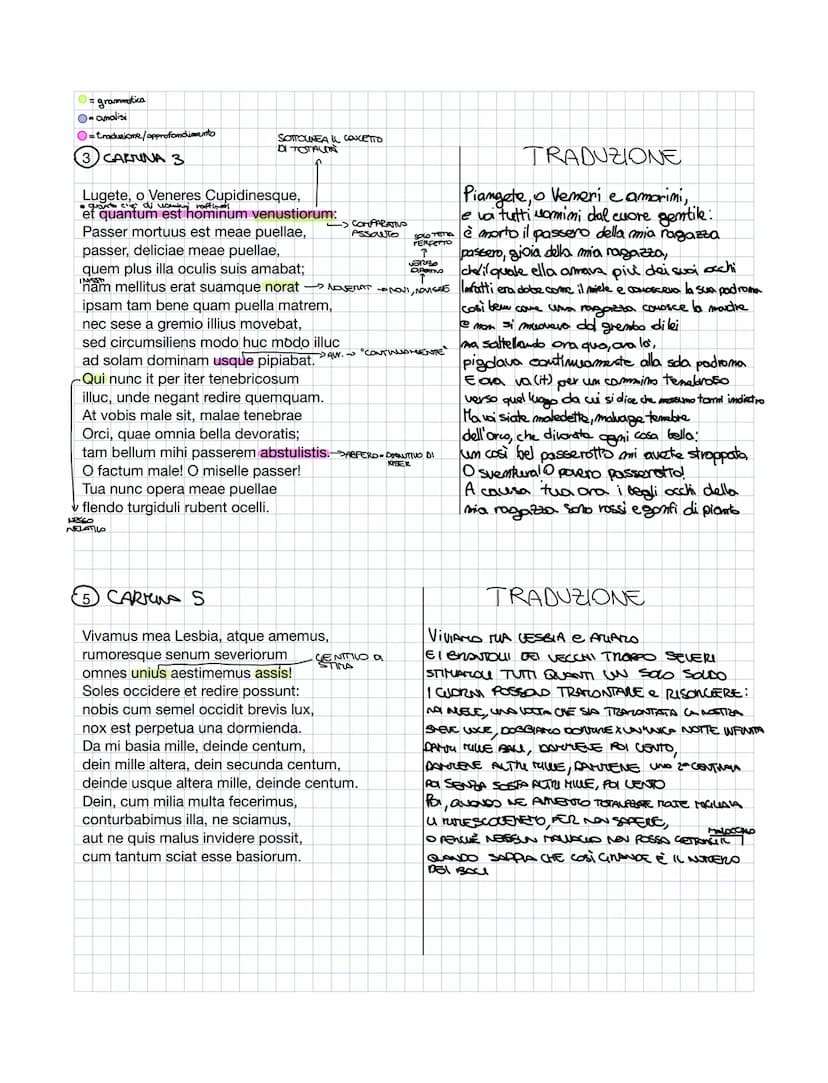 = grammatica
= analisi
= traduzione/approfondimento
SOTTOLINEA IL CONCETTO
DI TOTALITÀ
3 CARMINA 3
TRADUZIONE
Lugete, o Veneres Cupidinesque,
et quantum est hominum venustiorum:
Passer mortuus est meae puellae,
passer, deliciae meae puellae,
quem plus illa oculis suis amabat;
nam mellitus erat suamque norat
ipsam tam bene quam puella matrem,
nec sese a gremio illius movebat,
sed circumsiliens modo huc modo illuc
ad solam dominam usque pipiabat.
Qui nunc it per iter tenebricosum
illuc, unde negant redire quemquam.
At vobis male sit, malae tenebrae
Orci, quae omnia bella devoratis;
tam bellum mihi passerem abstulistis.
O factum male! O miselle passer!
Tua nunc opera meae puellae
flendo turgiduli rubent ocelli.
→ COMPARATIVO
ASSOLUTO
SOLO TEMA
PERFETTO
↑
VERBO
→ NOVERAT → NOVI, NOVISSE
→ AVV. → "CONTINUAMENTE"
NESSO
RELATIVO
Piangete, o Veneri e amorini,
e voi tutti uomini dal cuore gentile:
è morto il passero della mia ragazza
passero, gioia della mia ragazza,
che ella amava più dei suoi occhi
Infatti era dolce come il miele e conosceva la sua padrona
così bene come una ragazza conosce la madre
e non si muoveva dal grembo di lei
ma saltellando ora qua, ora là,
pigolava continuamente alla sola padrona
E ora va (it) per un cammino tenebroso
verso quel luogo da cui si dice che nessuno torni indietro
Ma voi siate maledette, malvage tenebre
dell'orco, che divorate ogni cosa bella:
un così bel passerotto mi avete strappato
O sventura! O povero passerotto!
A causa tua ora i begli occhi della
mia ragazza sono rossi e gonfi di pianto
5 CARMINA 5
TRADUZIONE
Vivamus mea Lesbia, atque amemus,
rumoresque senum severiorum
omnes unius aestimemus assis!
Soles occidere et redire possunt:
nobis cum semel occidit brevis lux,
nox est perpetua una dormienda.
Da mi basia mille, deinde centum,
dein mille altera, dein secunda centum,
deinde usque altera mille, deinde centum.
Dein, cum milia multa fecerimus,
conturbabimus illa, ne sciamus,
aut ne quis malus invidere possit,
cum tantum sciat esse basiorum.
GENITIVO DI
STIMA
VIVIAMO MIA LESBIA E AMIAMO
E I BRONTOLII DEI VECCHI TROPPO SEVERI
STIMIAMOLI TUTTI QUANTI UN SOLO SOLDO
I GIORNI POSSONO TRAMONTARE E RISORGERE:
NOI INVECE, UNA VOLTA CHE SIA TRAMONTATA LA NOSTRA
BREVE LUCE, DOBBIAMO DORMIRE X UN'UNICA NOTTE INFINITA
DAMMI MILLE BACI, DAMMENE POI CENTO,
DAMMENE ALTRI MILLE, DAMMENE UNO 2° CENTINAIA
POI SENZA SOSTA ALTRI MILLE, POI CENTO
POI, QUANDO NE AVREMO TOTALIZZATE MOLTE MIGLIAIA
LI RIMESCOLEREMO, PER NON SAPERE,
O PERCHÉ NESSUN MALVAGIO NON POSSA GETTARCI IL MALOCCHIO
QUANDO SAPPIA CHE COSÌ GRANDE È IL NUMERO
DEI BACI